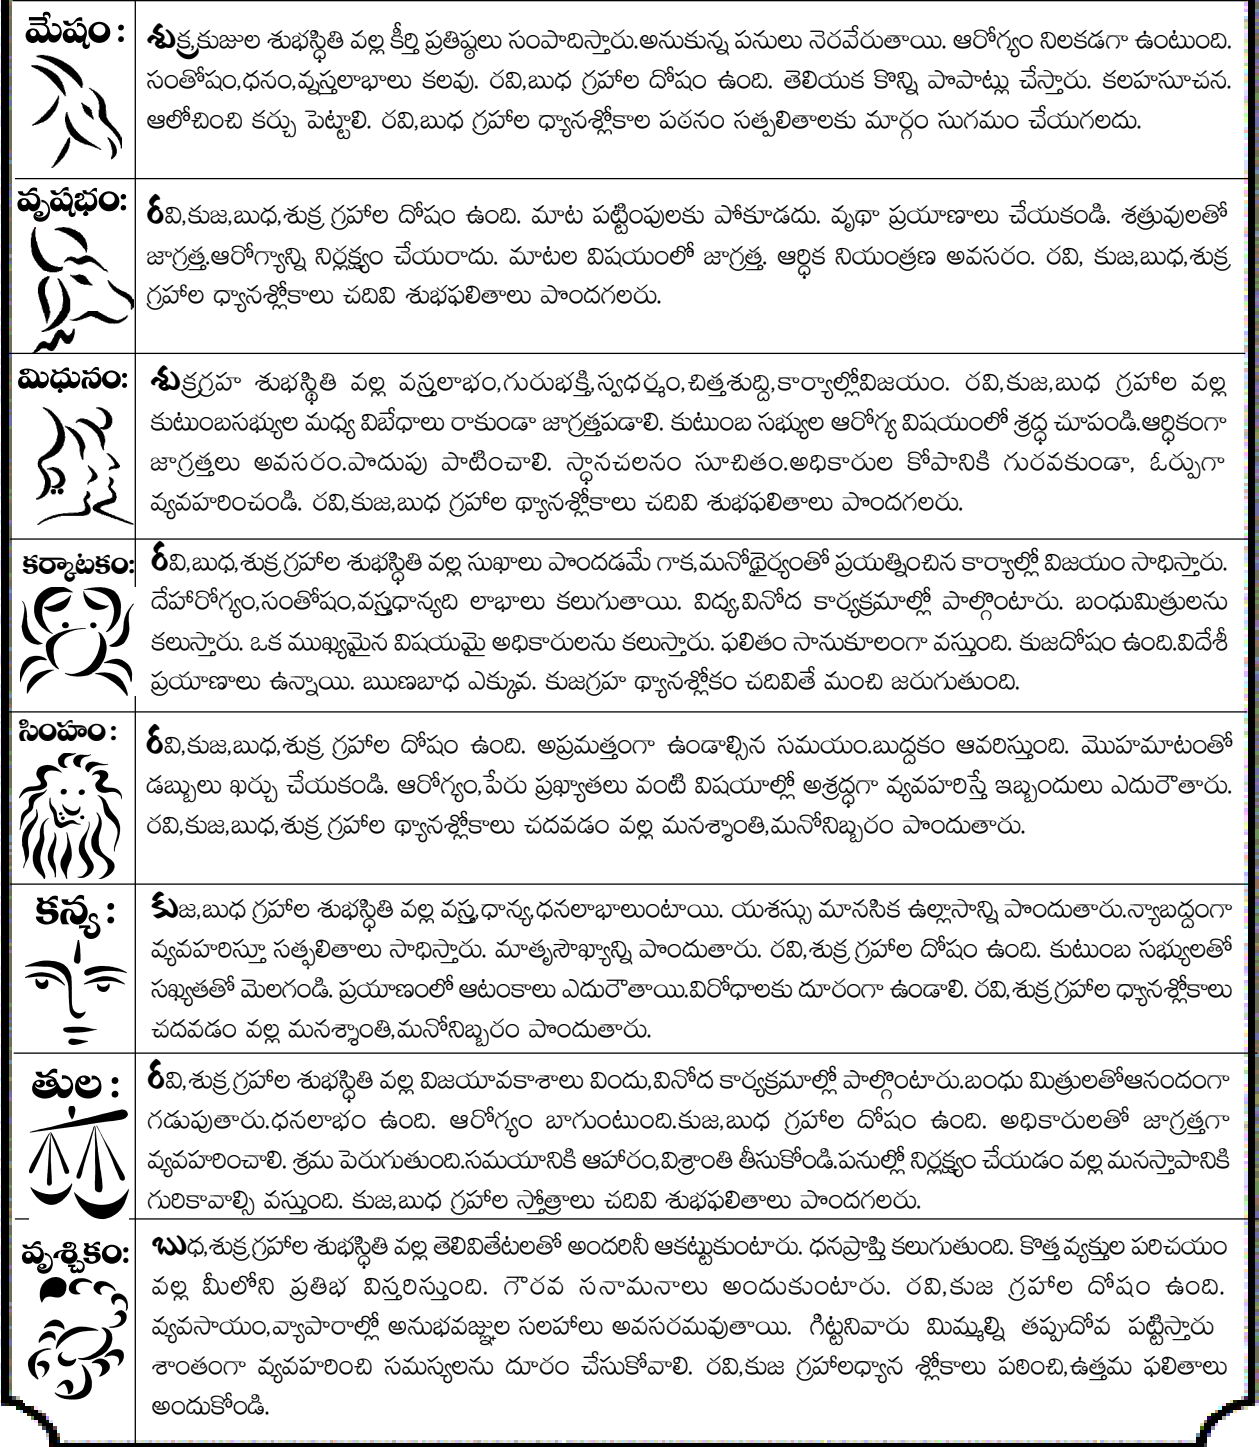 మేషం :
శుక్ర,కుజుల శుభస్థితి వల్ల కీర్తి ప్రతిష్ఠలు సంపాదిస్తారు.అనుకున్న పనులు నెరవేరుతాయి. ఆరోగ్యం నిలకడగా ఉంటుంది.
సంతోషం,ధనం,వ్నస్తలాభాలు కలవు. రవి,బుధ గ్రహాల దోషం ఉంది. తెలియక కొన్ని పొపాట్లు చేస్తారు. కలహసూచన.
ఆలోచించి కర్చు పెట్టాలి. రవి,బుధ గ్రహాల ధ్యానశ్లోకాల పఠనం సత్పలితాలకు మార్గం సుగమం చేయగలదు.
వృషభం:
రవి,కుజ,బుధ,శుక్ర గ్రహాల దోషం ఉంది. మాట పట్టింపులకు పోకూడదు. వృథా ప్రయాణాలు చేయకండి. శత్రువులతో
జాగ్రత్త.ఆరోగ్యాన్ని నిర్లక్ష్యం చేయరాదు. మాటల విషయంలో జాగ్రత్త. ఆర్థిక నియంత్రణ అవసరం. రవి, కుజ,బుధ,శుక్ర
గ్రహాల ధ్యానశ్లోకాలు చదివి శుభఫలితాలు పొందగలరు.
మిధునం:
శుక్రగ్రహ శుభస్థితి వల్ల వస్త్రలాభం,గురుభక్తి,స్వధర్మం,చిత్తశుద్ది,కార్యాల్లోవిజయం. రవి,కుజ,బుధ గ్రహాల వల్ల
కుటుంబసభ్యుల మధ్య విబేధాలు రాకుండా జాగ్రత్తపడాలి. కుటుంబ సభ్యుల ఆరోగ్య విషయంలో శ్రద్ధ చూపండి.ఆర్ధికంగా
జాగ్రత్తలు అవసరం.పొదుపు పాటించాలి. స్థానచలనం సూచితం.అధికారుల కోపానికి గురవకుండా, ఓర్పుగా
వ్యవహరించండి. రవి,కుజ,బుధ గ్రహాల థ్యానశ్లోకాలు చదివి శుభఫలితాలు పొందగలరు.
కర్కాటకం:
రవి,బుధ,శుక్రగ్రహాల శుభస్థితి వల్ల సుఖాలు పొందడమే గాక,మనోథైర్యంతో ప్రయత్నించిన కార్యాల్లో విజయం సాధిస్తారు.
దేహారోగ్యం,సంతోషం,వస్త్రధాన్యది లాభాలు కలుగుతాయి. విద్య,వినోద కార్యక్రమాల్లో పాల్గొంటారు. బంధుమిత్రులను
కలుస్తారు. ఒక ముఖ్యమైన విషయమై అధికారులను కలుస్తారు. ఫలితం సానుకూలంగా వస్తుంది. కుజదోషం ఉంది.విదేశీ
ప్రయాణాలు ఉన్నాయి. ఋణబాధ ఎక్కువ. కుజగ్రహ థ్యానశ్లోకం చదివితే మంచి జరుగుతుంది.
సింహం :
రవి,కుజ,బుధ,శుక్ర గ్రహాల దోషం ఉంది. అప్రమత్తంగా ఉండాల్సిన సమయం.బుద్దకం ఆవరిస్తుంది. మొహమాటంతో
డబ్బులు ఖర్చు చేయకండి. ఆరోగ్యం,పేరు ప్రఖ్యాతలు వంటి విషయాల్లో అశ్రద్ధగా వ్యవహరిస్తే ఇబ్బందులు ఎదురౌతారు.
రవి,కుజ,బుధ,శుక్ర గ్రహాల థ్యానశ్లోకాలు చదవడం వల్ల మనశ్శాంతి,మనోనిబ్బరం పొందుతారు.
కన్య :
కుజ,బుధ గ్రహాల శుభస్థితి వల్ల వస్త్ర,ధాన్య,ధనలాభాలుంటాయి. యశస్సు మానసిక ఉల్లాసాన్ని పొందుతారు.న్యాబద్దంగా
వ్యవహరిస్తూ సత్ఫలితాలు సాధిస్తారు. మాతృసౌఖ్యాన్ని పొందుతారు. రవి,శుక్ర గ్రహాల దోషం ఉంది. కుటుంబ సభ్యులతో
సఖ్యతతో మెలగండి. ప్రయాణంలో ఆటంకాలు ఎదురౌతాయి.విరోధాలకు దూరంగా ఉండాలి. రవి,శుక్రగ్రహాల ధ్యానశ్లోకాలు
చదవడం వల్ల మనశ్శాంతి,మనోనిబ్బరం పొందుతారు.
తుల :
రవి,శుక్రగ్రహాల శుభస్థితి వల్ల విజయావకాశాలు విందు,వినోద కార్యక్రమాల్లో పాల్గొంటారు.బంధు మిత్రులతోఆనందంగా
గడుపుతారు.ధనలాభం ఉంది. ఆరోగ్యం బాగుంటుంది.కుజ,బుధ గ్రహాల దోషం ఉంది. అధికారులతో జాగ్రత్తగా
వ్యవహరించాలి. శ్రమ పెరుగుతుంది.సమయానికి ఆహారం,విశ్రాంతి తీసుకోండి.పనుల్లో నిర్లక్ష్యం చేయడం వల్ల మనస్తాపానికి
గురికావాల్సి వస్తుంది. కుజ,బుధ గ్రహాల స్తోత్రాలు చదివి శుభఫలితాలు పొందగలరు.
వృశ్చికం:
బుధ,శుక్రగ్రహాల శుభస్థితి వల్ల తెలివితేటలతో అందరినీ ఆకట్టుకుంటారు. ధనప్రాప్తి కలుగుతుంది. కొత్త వ్యక్తుల పరిచయం
వల్ల మీలోని ప్రతిభ విస్తరిస్తుంది. గౌరవ సనామనాలు అందుకుంటారు. రవి,కుజ గ్రహాల దోషం ఉంది.
వ్యవసాయం,వ్యాపారాల్లో అనుభవజ్ఞుల సలహాలు అవసరమవుతాయి. గిట్టనివారు మిమ్మల్ని తప్పుదోవ పట్టిస్తారు
శాంతంగా వ్యవహరించి సమస్యలను దూరం చేసుకోవాలి. రవి,కుజ గ్రహాలధ్యాన శ్లోకాలు పఠించి,ఉత్తమ ఫలితాలు
అందుకోండి.